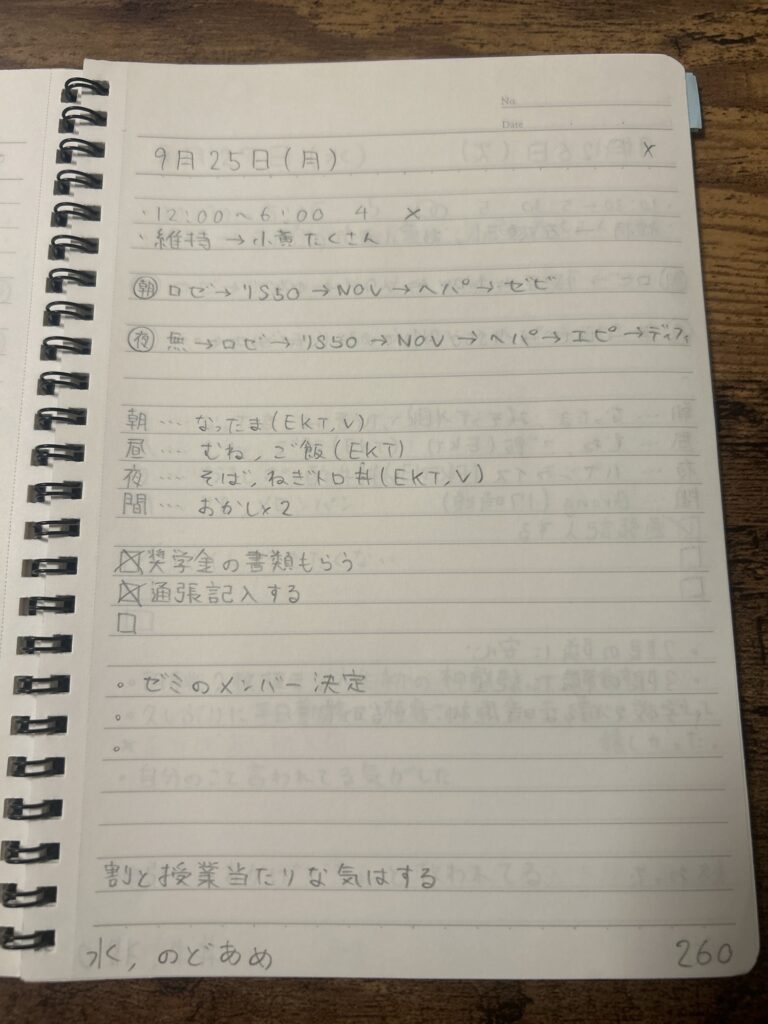 No.
Date
9月25日(月) x
・12:00〜6:00 4 x
・維持→小黄たくさん
朝 ロゼ→リS50→NOV→ヘパ→ゼビ
夜 無→ロゼ→リS50→NOV→ヘパ→エピ→ディフィ
朝…なったま(EKT,V)
昼…むね,ご飯(EKT)
夜…そば,ねぎトロ丼(EKT,V)
間…おかし×2
☒奨学金の書類もらう
☒通張記入する
□
。ゼミのメンバー決定
。
。
割と授業当たりな気はする
水,のどあめ 260